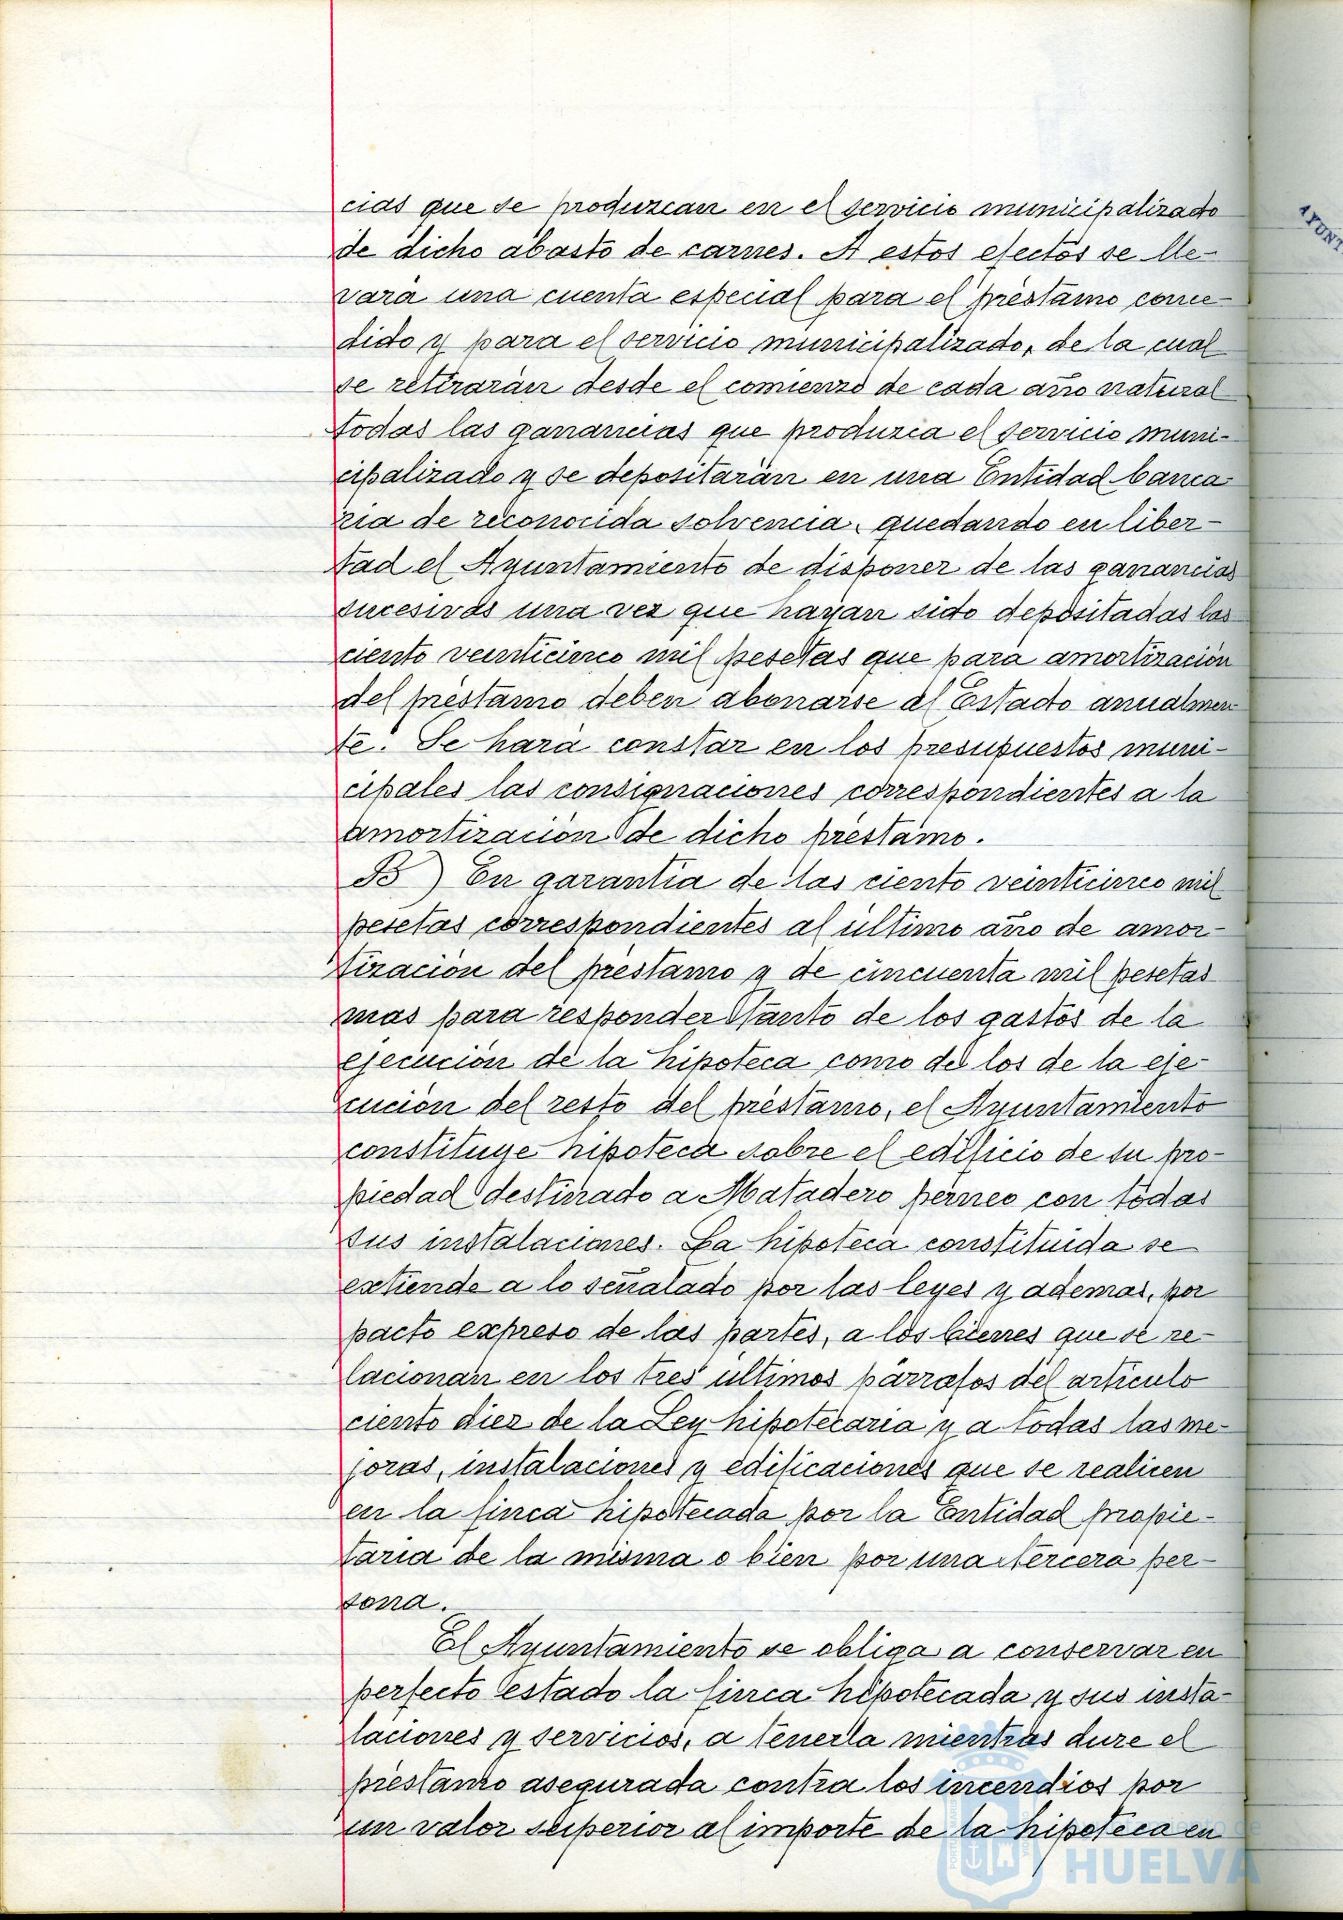 cias que se produzcan en el servicio municipalizado
de dicho abasto de carnes. A estos efectos se lle-
vará una cuenta especial para el préstamo conce-
dido y para el servicio municipalizado, de la cual
se retirarán desde el comienzo de cada año natural
todas las ganancias que produzca el servicio muni-
cipalizado y se depositarán en una Entidad banca
ria de reconocida solvencia, quedando en liber-
tad el Ayuntamiento de disponer de las ganancias
sucesivas una vez que hayan sido depositadas las
ciento veinticinco mil pesetas que para amortización
del préstamo deben abonarse al Estado anualmen-
te. Se hará constar en los presupuestos muni-
cipales las consignaciones correspondientes a la
amortización de dicho préstamo.
B) En garantía de las ciento veinticinco mil
pesetas correspondientes al último año de amor-
tización del préstamo y de cincuenta mil pesetas
mas para responder tanto de los gastos de la
ejecución de la hipoteca como de los de la eje-
cución del resto del préstamo, el Ayuntamiento
constituye hipoteca sobre el edificio de su pro-
piedad destinado a Matadero pérneo con todas
sus instalaciones. La hipoteca constituida se
extiende a lo señalado por las leyes y ademas, por
pacto expreso de las partes, a los bienes que se re-
lacionan en los tres últimos párrafos del artículo
ciento diez de la Ley hipotecaria y a todas las me-
joras, instalaciones y edificaciones que se realicen
en la finca hipotecada por la Entidad propie-
taria de la misma o bien por una tercera per-
sona.
El Ayuntamiento se obliga a conservar en
perfecto estado la finca hipotecada y sus insta-
laciones y servicios, a tenerla mientras dure el
préstamo asegurada contra los incendios por
un valor superior al importe de la hipoteca en
AYUNT
de
HUELVA